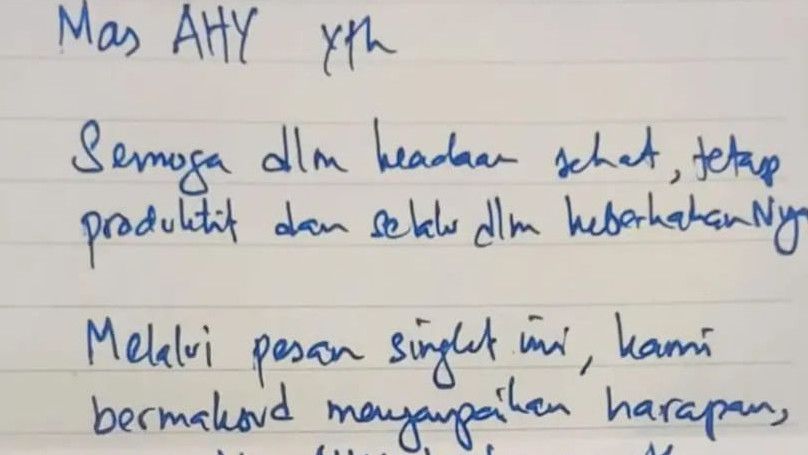 Mas AHY Yth
Semoga dlm keadaan sehat, tetap
produktif dan selalu dlm keberkahanNya
Melalui pesan singkat ini, kami
bermaksud menyampaikan harapan,